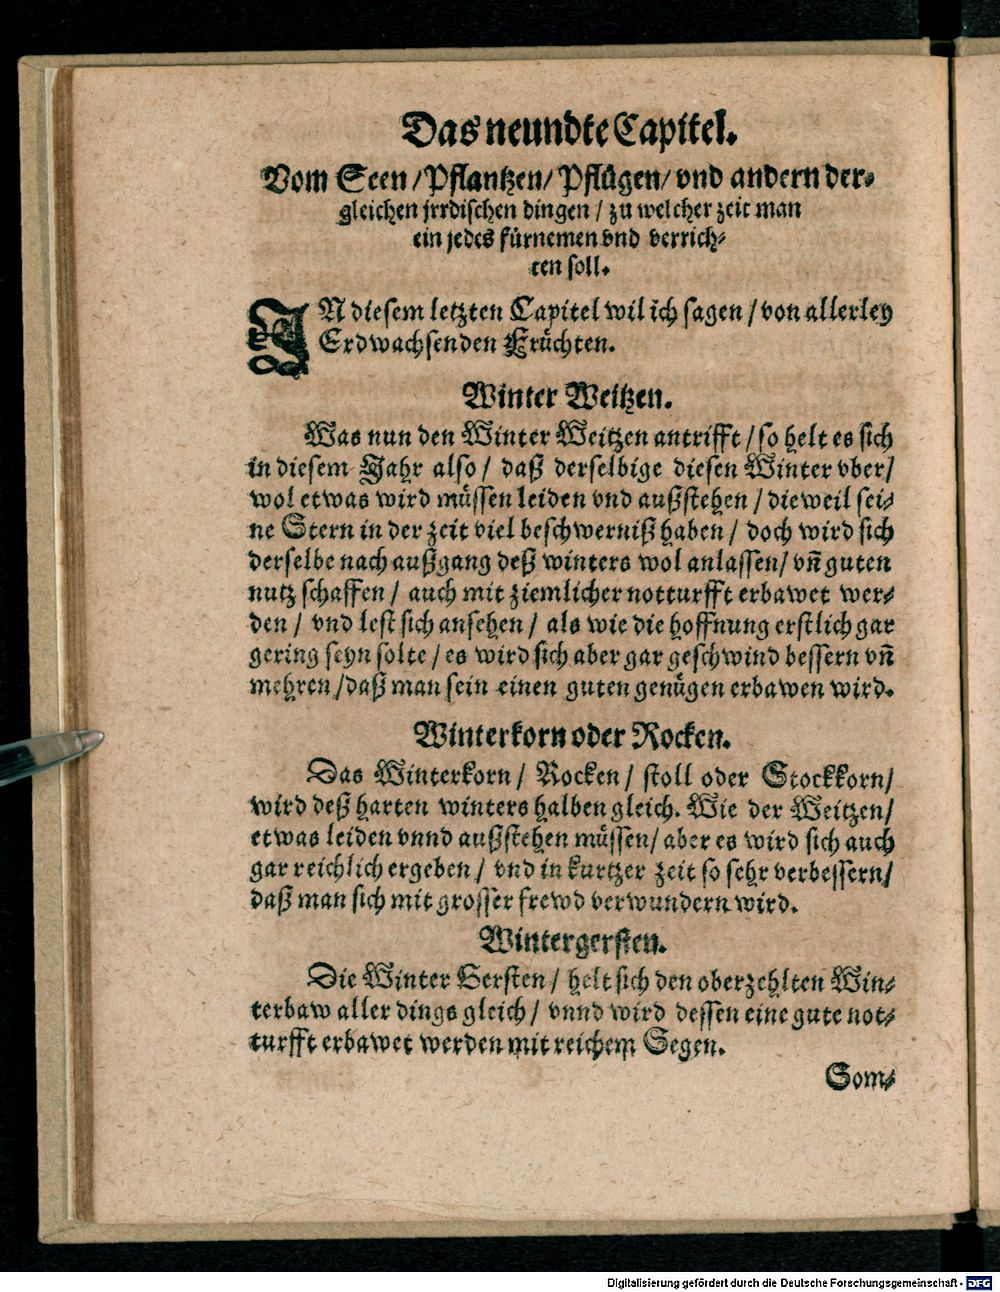 Das neundte Capitel.
Vom Seen / Pflantzen / Pflügen / vnd andern der-
gleichen jrrdischen dingen / zu welcher zeit man
ein jedes fürnemen vnd verrich-
ten soll.
IN diesem letzten Capitel wil ich sagen / von allerley
Erdwachsenden Früchten.
Winter Weitzen.
Was nun den Winter Weitzen antrifft / so helt es sich
in diesem Jahr also / daß derselbige diesen Winter vber /
wol etwas wird müssen leiden vnd außstehen / dieweil sei-
ne Stern in der zeit viel beschwerniß haben / doch wird sich
derselbe nach außgang deß winters wol anlassen / vn̄ guten
nutz schaffen / auch mit ziemlicher notturfft erbawet wer-
den / vnd lest sich ansehen / als wie die hoffnung erstlich gar
gering seyn solte / es wird sich aber gar geschwind bessern vn̄
mehren / daß man sein einen guten genügen erbawen wird.
Winterkorn oder Rocken.
Das Winterkorn / Rocken / stoll oder Stockkorn /
wird deß harten winters halben gleich. Wie der Weitzen /
etwas leiden vnnd außstehen müssen / aber es wird sich auch
gar reichlich ergeben / vnd in kurtzer zeit so sehr verbessern /
daß man sich mit grosser frewd verwundern wird.
Wintergersten.
Die Winter Gersten / helt sich den oberzehlten Win-
terbaw aller dings gleich / vnnd wird dessen eine gute not-
turfft erbawet werden mit reichem Segen.
Som-
Digitalisierung gefördert durch die Deutsche Forschungsgemeinschaft - DFG